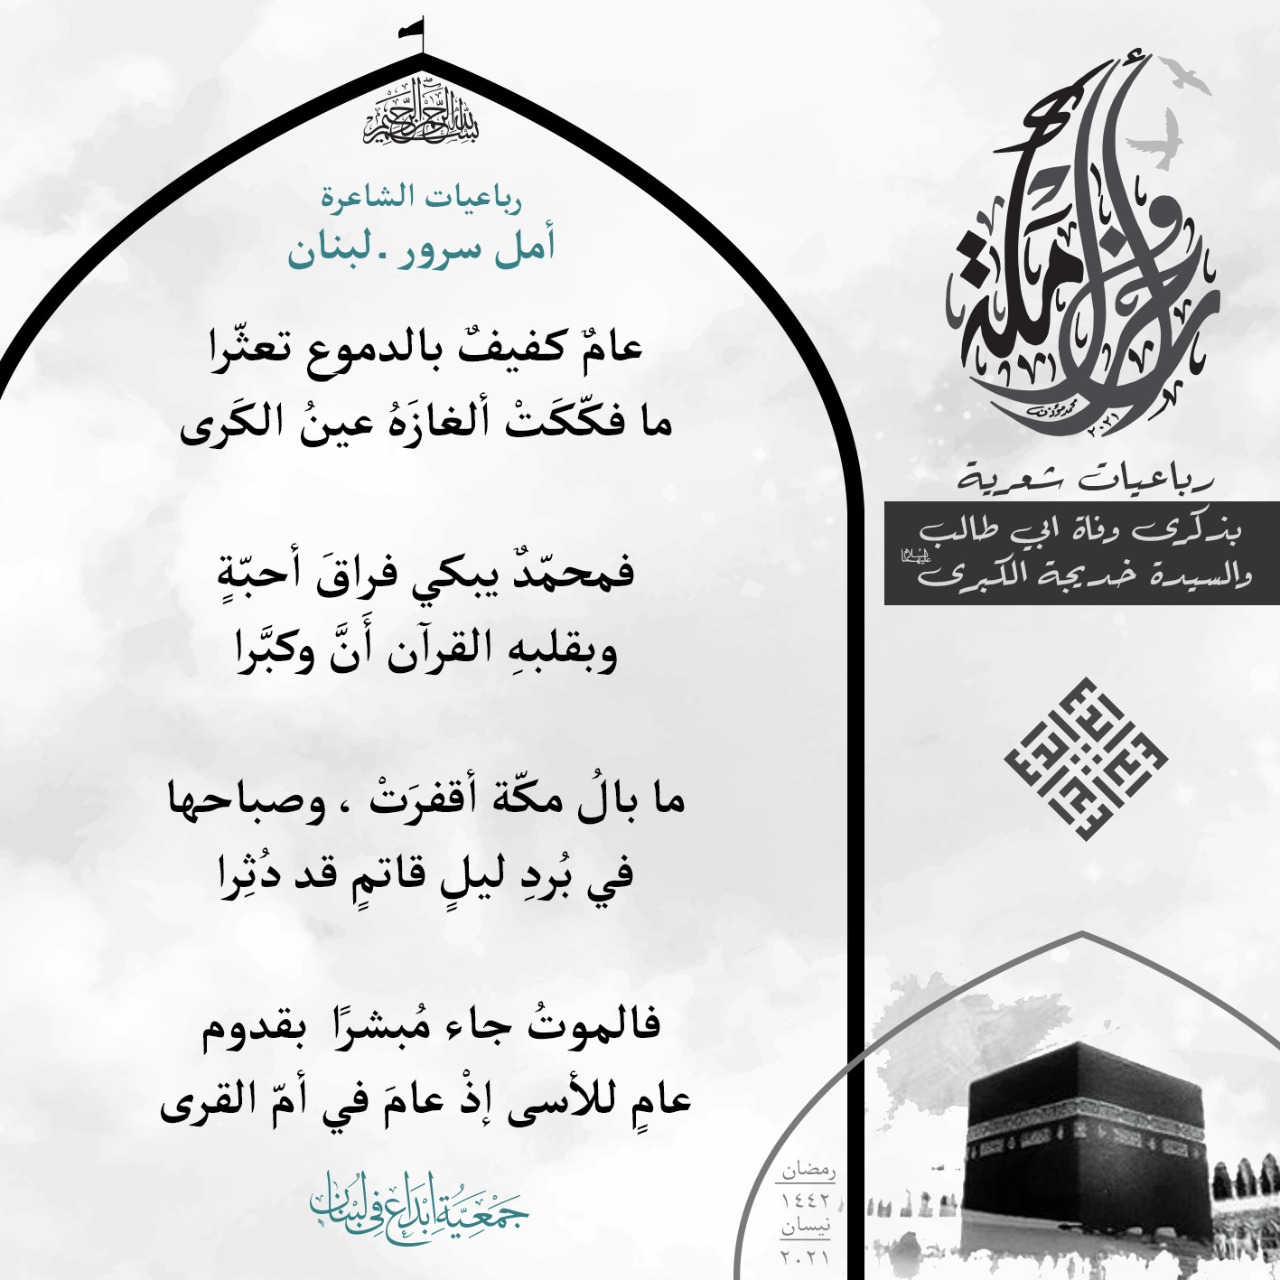 بسم الله الرحمن الرحيم
رباعيات الشاعرة
أمل سرور ـ لبنان
عامٌ كفيفٌ بالدموع تعثّرا
ما فكّكَتْ ألغازَهُ عينُ الكَرى
فمحمّدٌ يبكي فراقَ أحبّةٍ
وبقلبهِ القرآن أَنَّ وكبَّرا
ما بالُ مكّة أقفرَتْ ، وصباحها
في بُردِ ليلٍ قاتمٍ قد دُثِرا
فالموتُ جاء مُبشرًا بقدوم
عامٍ للأسى إذْ عامَ في أمّ القرى
جَمْعِيَّةُ إِبْدَاعْ فِي لُبْنَان
محمد مؤذن
٢٠٢١
رباعيات شعرية
بذكرى وفاة ابي طالب
والسيدة خديجة الكبرى عليهما السلام
إبداع
رمضان
١٤٤٢
نيسان
٢٠٢١